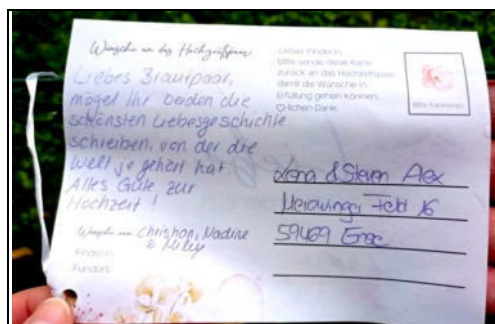 Wünsche an das Hochzeitspaar
Liebes Brautpaar,
möget ihr beiden die
schönsten Liebesgeschichte
schreiben, von der die
Welt je gehört hat
Alles Gute zur
Hochzeit!
Wünsche von Christian, Nadine
& Milly
Finder:in
Fundort:
Liebe:r Finder:in,
bitte sende diese Karte
zurück an das Hochzeitspaar,
damit die Wünsche in
Erfüllung gehen können.
♡lichen Dank.
Bitte frankieren
Lena & Steven Alex
Merowinger Feld 16
59469 Ense